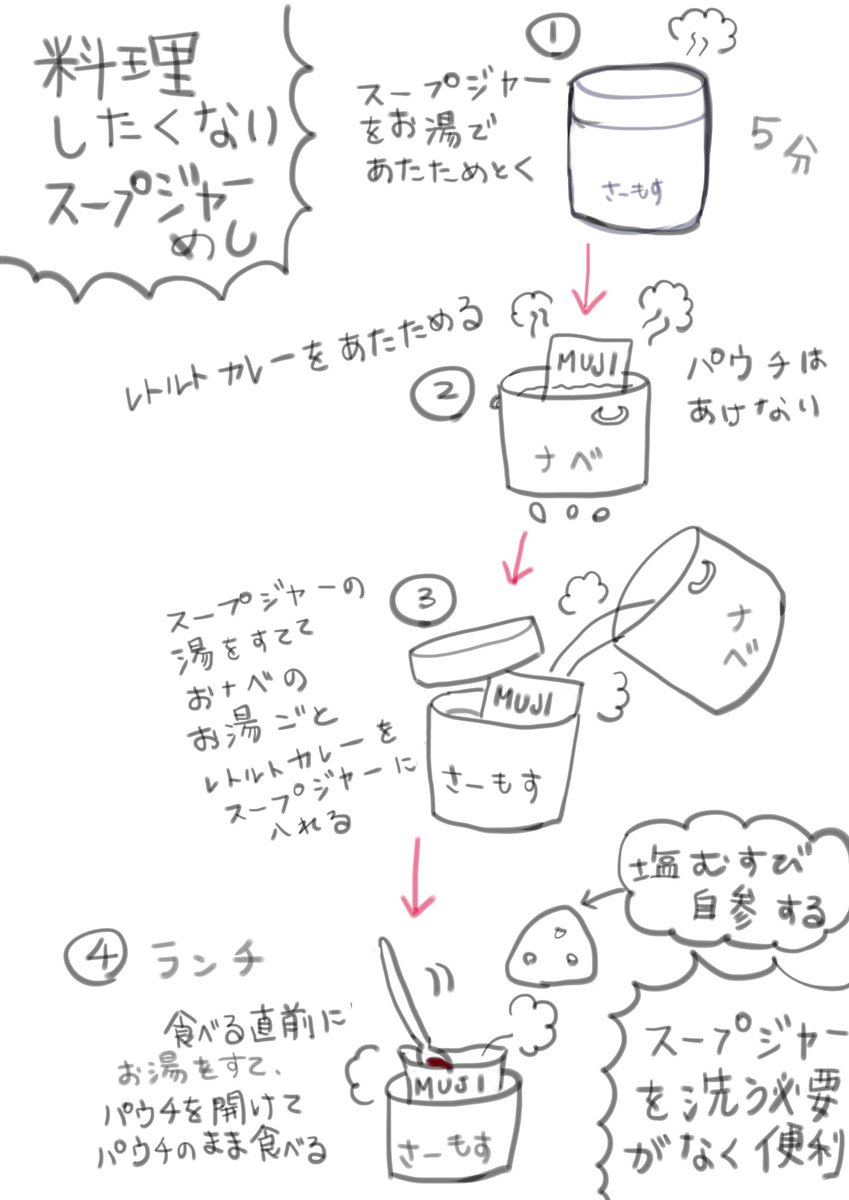 料理
したくない
スープジャー
めし
①
スープジャー
をお湯で
あたためとく
さーもす
5分
レトルトカレーをあたためる
②
MUJI
ナベ
パウチは
あけない
③
スープジャーの
湯をすてて
おナベの
お湯ごと
レトルトカレーを
スープジャーに
入れる
ナベ
MUJI
さーもす
塩むすび
自参する
④ ランチ
食べる直前に
お湯をすて、
パウチを開けて
パウチのまま食べる
MUJI
さーもす
スープジャー
を洗う必要
がなく便利